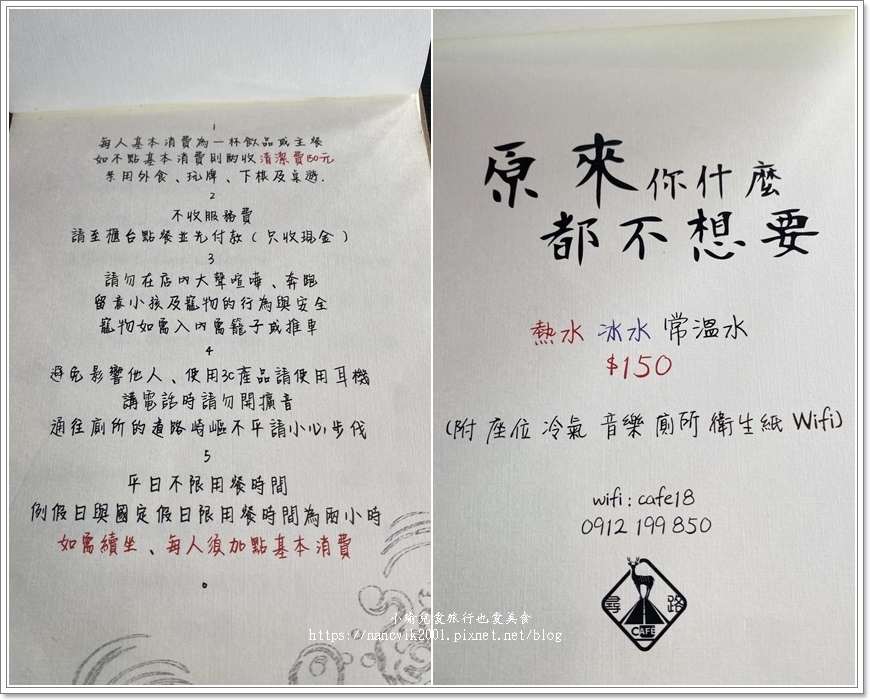 1
每人基本消費為一杯飲品或主餐
如不點基本消費則酌收清潔費150元
禁用外食、玩牌、下棋及桌遊.
2
不收服務費
請至櫃台點餐並先付款(只收現金)
3
請勿在店內大聲喧嘩、奔跑
留意小孩及寵物的行為與安全
寵物如需入內需籠子或推車
4
避免影響他人、使用3C產品請使用耳機
講電話時請勿開擴音
通往廁所的道路崎嶇不平請小心步伐
5
平日不限用餐時間
例假日與國定假日限用餐時間為兩小時
如需續坐、每人須加點基本消費
原來你什麼
都不想要
熱水 冰水 常溫水
$150
(附 座位 冷氣 音樂 廁所 衛生紙 Wifi)
wifi : cafe18
0912 199 850
尋路
CAFE
小瑜兒愛旅行也愛美食
https://nancylk2001.pixnet.net/blog